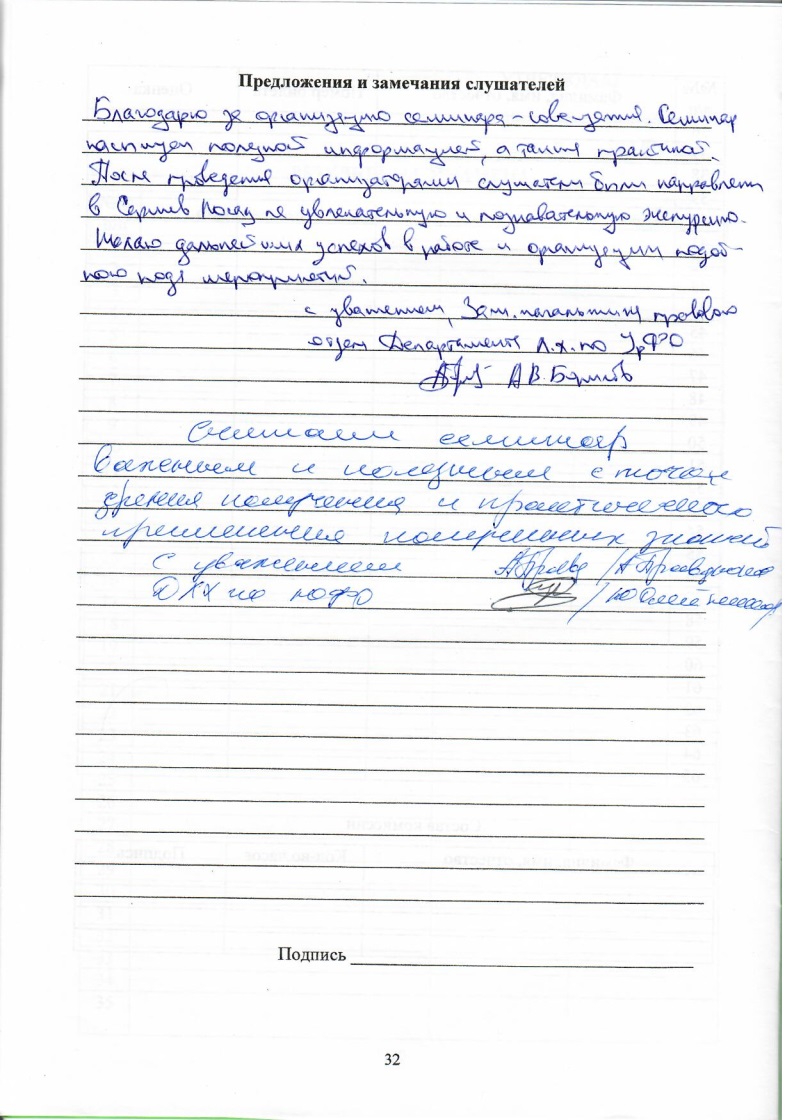 Предложения и замечания слушателей
Благодарю за организацию семинара-совещания. Семинар
насыщен полезной информацией, а также практикой.
После проведения организаторами слушатели были направлены
в Сергиев Посад на увлекательную и познавательную экскурсию.
Желаю дальнейших успехов в работе и организации подоб-
ного рода мероприятий.
с уважением, Зам. начальника правового
отдела Департамента л.х. по УрФО
А.В.
Считаем семинар
важным и полезным с точки
зрения получения и практического
применения полученных знаний
С уважением
ДЛХ по ЮФО
Подпись
32